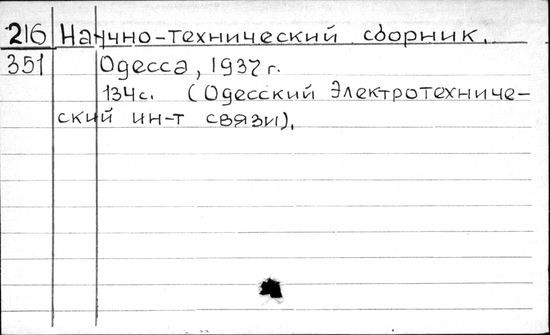 216 Научно-технический сборник.
351 Одесса, 1937 г.
134 с. (Одесский Электротехниче-
ский ин-т связи).